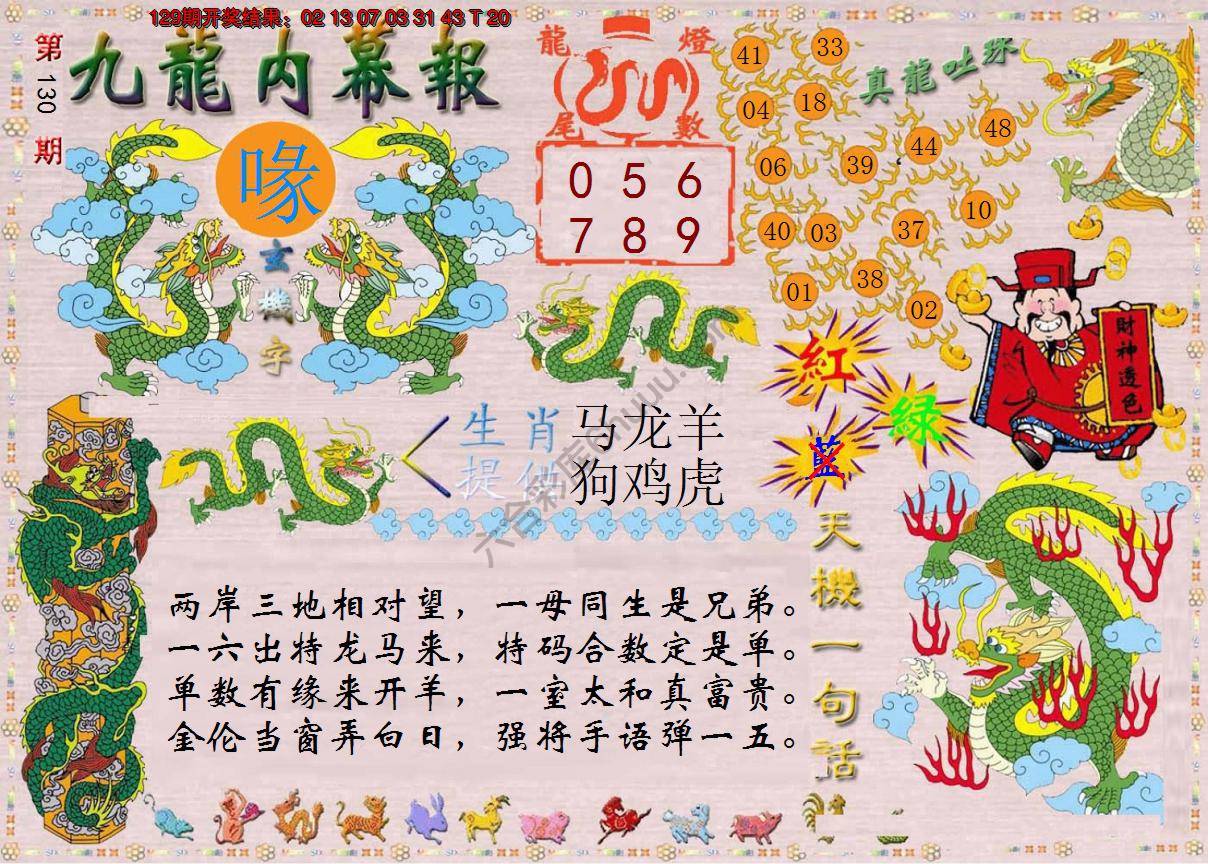 129期开奖结果：02 13 07 03 31 43 T 20
第130期
九龍内幕報
喙
玄機字
龍燈
尾數
0 5 6
7 8 9
真龍吐珠
41 33
04 18
48
44
06 39
10
40 03 37
38
01
02
財神透色
紅
綠
藍
生肖 马龙羊
提供 狗鸡虎
六合彩库
天機一句話
两岸三地相对望，一母同生是兄弟。
一六出特龙马来，特码合数定是单。
单数有缘来开羊，一室太和真富贵。
金伦当窗弄白日，强将手语弹一五。